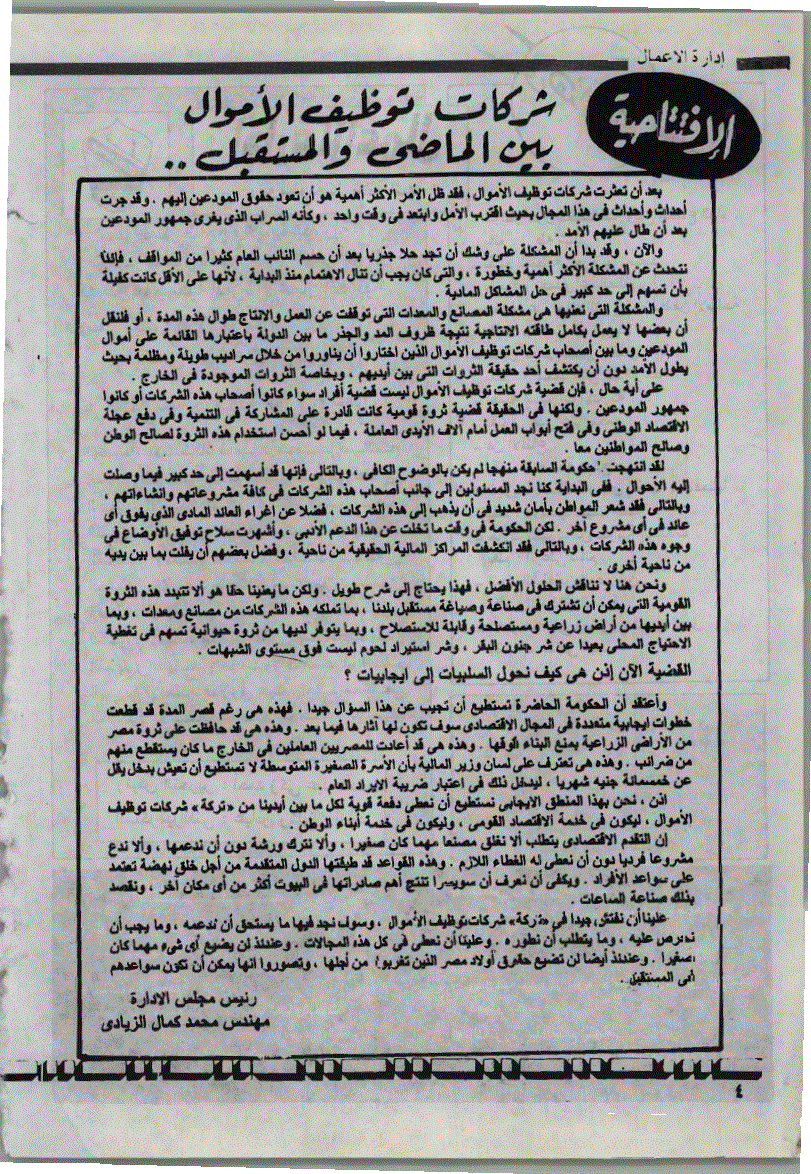 إدارة الاعمال
الإفتتاحية
شركات توظيف الأموال
بين الماضى والمستقبل ..
بعد أن تعثرت شركات توظيف الأموال ، فقد ظل الأمر الأكثر أهمية هو أن تعود حقوق المودعين إليهم . وقد جرت
أحداث وأحداث فى هذا المجال بحيث اقترب الأمل وابتعد فى وقت واحد ، وكأنه السراب الذى يغرى جمهور المودعين
بعد أن طال عليهم الأمد .
والآن ، وقد بدا أن المشكلة على وشك أن تجد حلا جذريا بعد أن حسم النائب العام كثيرا من المواقف ، فإننا
نتحدث عن المشكلة الأكثر أهمية وخطورة ، والتى كان يجب أن تنال الاهتمام منذ البداية ، لأنها على الأقل كانت كفيلة
بأن تسهم إلى حد كبير فى حل المشاكل المادية .
والمشكلة التى نعنيها هى مشكلة المصانع والمعدات التى توقفت عن العمل والانتاج طوال هذه المدة ، أو فلنقل
أن بعضها لا يعمل بكامل طاقته الانتاجية نتيجة ظروف المد والجذر ما بين الدولة باعتبارها القائمة على أموال
المودعين وما بين أصحاب شركات توظيف الأموال الذين اختاروا أن يناوروا من خلال سراديب طويلة ومظلمة بحيث
يطول الأمد دون أن يكتشف أحد حقيقة الثروات التى بين أيديهم ، وبخاصة الثروات الموجودة فى الخارج .
على أية حال ، فإن قضية شركات توظيف الأموال ليست قضية أفراد سواء كانوا أصحاب هذه الشركات أو كانوا
جمهور المودعين . ولكنها فى الحقيقة قضية ثروة قومية كانت قادرة على المشاركة فى التنمية وفى دفع عجلة
الاقتصاد الوطنى وفى فتح أبواب العمل أمام آلاف الأيدى العاملة ، فيما لو أحسن استخدام هذه الثروة لصالح الوطن
وصالح المواطنين معا .
لقد انتهجت حكومة السابقة منهجا لم يكن بالوضوح الكافى ، وبالتالى فإنها قد أسهمت إلى حد كبير فيما وصلت
إليه الأحوال . ففى البداية كنا نجد المسئولين إلى جانب أصحاب هذه الشركات فى كافة مشروعاتهم وانشاءاتهم ،
وبالتالى فقد شعر المواطن بأمان شديد فى أن يذهب إلى هذه الشركات ، فضلا عن اغراء العائد المادى الذى يفوق أى
عائد فى أى مشروع آخر . لكن الحكومة فى وقت ما تخلت عن هذا الدعم الأدبى ، وأشهرت سلاح توفيق الأوضاع فى
وجوه هذه الشركات ، وبالتالى فقد انكشفت المراكز المالية الحقيقية من ناحية ، وفضل بعضهم أن يفلت بما بين يديه
من ناحية أخرى .
ونحن هنا لا نناقش الحلول الأفضل ، فهذا يحتاج إلى شرح طويل . ولكن ما يعنينا حقا هو ألا تتبدد هذه الثروة
القومية التى يمكن أن تشترك فى صناعة وصياغة مستقبل بلدنا ، بما تملكه هذه الشركات من مصانع ومعدات ، وبما
بين أيديها من أراض زراعية ومستصلحة وقابلة للاستصلاح ، وبما يتوفر لديها من ثروة حيوانية تسهم فى تغطية
الاحتياج المحلى بعيدا عن شر جنون البقر ، وشر استيراد لحوم ليست فوق مستوى الشبهات .
القضية الآن إذن هى كيف نحول السلبيات إلى ايجابيات ؟
وأعتقد أن الحكومة الحاضرة تستطيع أن تجيب عن هذا السؤال جيدا . فهذه هى رغم قصر المدة قد قطعت
خطوات ايجابية متعددة فى المجال الاقتصادى سوف تكون لها آثارها فيما بعد . وهذه هى قد حافظت على ثروة مصر
من الأراضى الزراعية بمنع البناء فوقها . وهذه هى قد أعادت للمصريين العاملين فى الخارج ما كان يستقطع منهم
من ضرائب . وهذه هى تعترف على لسان وزير المالية بأن الأسرة الصغيرة المتوسطة لا تستطيع أن تعيش بدخل يقل
عن خمسمائة جنيه شهريا ، ليدخل ذلك فى اعتبار ضريبة الايراد العام .
اذن ، نحن بهذا المنطق الايجابى نستطيع أن نعطى دفعة قوية لكل ما بين أيدينا من «تركة» شركات توظيف
الأموال ، ليكون فى خدمة الاقتصاد القومى ، وليكون فى خدمة أبناء الوطن .
إن التقدم الاقتصادى يتطلب ألا نغلق مصنعا مهما كان صغيرا ، وألا نترك ورشة دون أن ندعمها ، وألا ندع
مشروعا فرديا دون أن نعطى له الغطاء اللازم . وهذه القواعد قد طبقتها الدول المتقدمة من أجل خلق نهضة تعتمد
على سواعد الأفراد . ويكفى أن نعرف أن سويسرا تنتج أهم صادراتها فى البيوت أكثر من أى مكان آخر ، ونقصد
بذلك صناعة الساعات .
علينا أن نفتش جيدا فى «تركة» شركات توظيف الأموال ، وسوف نجد فيها ما يستحق أن ندعمه ، وما يجب أن
نحرص عليه ، وما يتطلب أن نطوره . وعلينا أن نعطى فى كل هذه المجالات . وعندئذ لن يضيع أى شىء مهما كان
صغيرا . وعندئذ أيضا لن تضيع حقوق أولاد مصر الذين تغربوا من أجلها ، وتصوروا انها يمكن أن تكون سواعدهم
فى المستقبل .
رئيس مجلس الادارة
مهندس محمد كمال الزيادى
٤